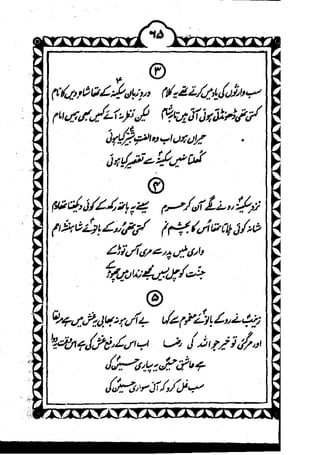 ۶۵
۳
سب وارثوں کی یاد میں کرتے تھے یہ کلام ورد زبان سکینہؑ کے تھا شاہ دیں کا نام
کہتی تھی ڈھونڈتی ہوئی آتی ہیں تا بشام لیکن نظر نہ آئے کہیں بھی ہمیں امام
حیراں ہوں اب وہ الفت شبیر کیا ہوئی
کھلتا نہیں سکینہ سے تقصیر کیا ہوئی
۴
نزد سکینہ رونے لگے آن کر حرم سینے پہ ہاتھ رکھ کے کوئی دیکھتا تھا دم
شانہ کوئی ہلاتا تھا اُس کا بچشم نم کہتی تھی رو کے بانوئے شاہنشہ امم
واری ملیں پدر سے مری آس توڑ کے
جنت کو چل بسیں مجھے زنداں میں چھوڑ کے
۵
زینب نے رو کے بانوئے مغموم سے کہا بے آس ہو نہ بھابی یہ غش میں ہے مہ لقا
اور مر گئی تو خیر جو اللہ کی رضا اب اس کے رفع غش کی ہے اس وقت یہ دوا
ہے عاشق حسین یہ پیاری حسین کی
سب غل کرو کہ آئی سواری حسین کی